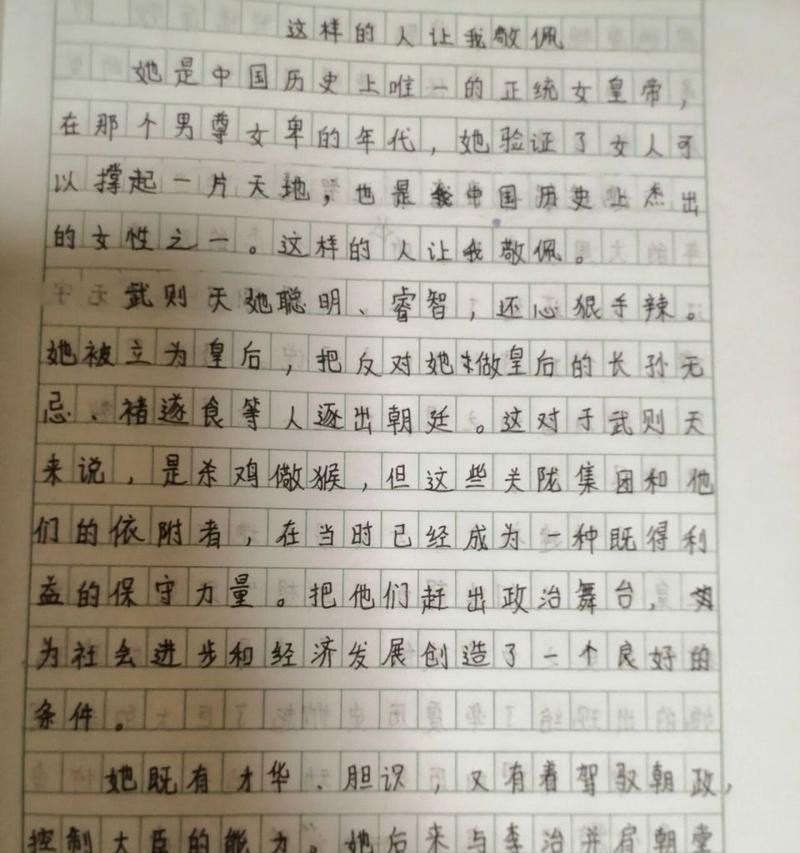 这样的人让我敬佩
她是中国历史上唯一的正统女皇帝，
在那个男尊女卑的年代，她验证了女人可
以撑起一片天地，也是中国历史上杰出
的女性之一。这样的人让我敬佩。
武则天她聪明、睿智，还心狠手辣。
她被立为皇后，把反对她做皇后的长孙无
忌、褚遂食等人逐出朝廷。这对于武则天
来说，是杀鸡儆猴，但这些关陇集团和他
们的依附者，在当时已经成为一种既得利
益的保守力量。把他们赶出政治舞台，
为社会进步和经济发展创造了一个良好的
条件。
她既有才华、胆识，又有着驾驭朝政，
控制大臣的能力。她后来与李治并肩朝堂